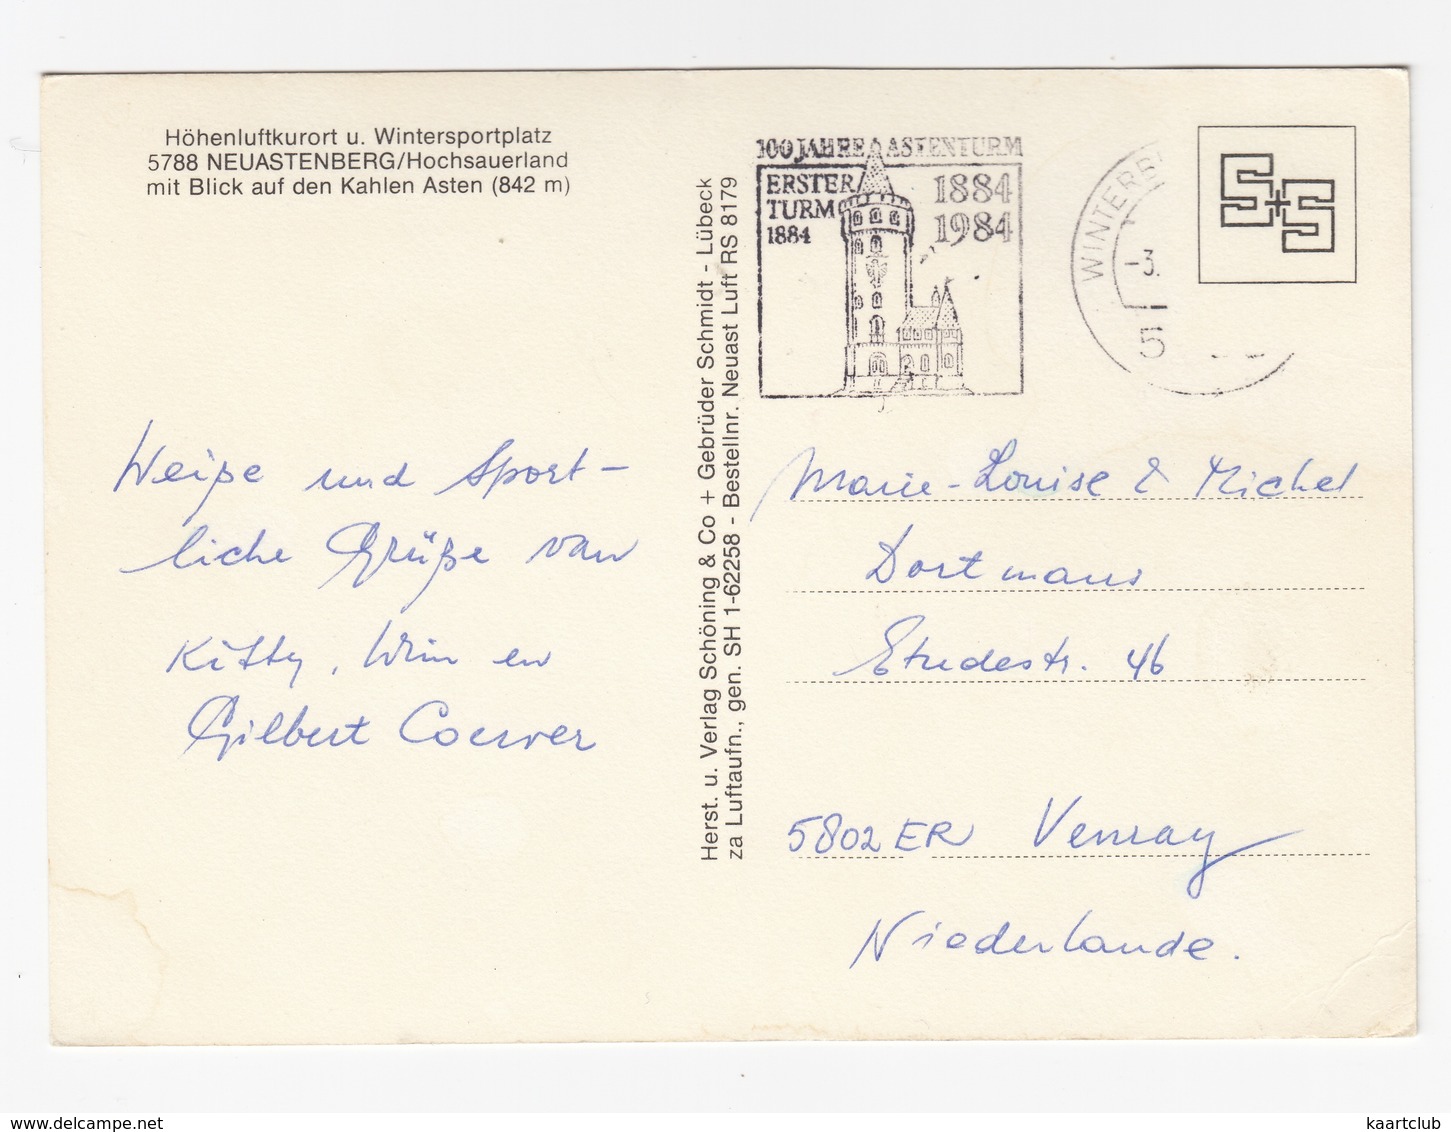 Höhenluftkurort u. Wintersportplatz
5788 NEUASTENBERG/Hochsauerland
mit Blick auf den Kahlen Asten (842 m)
Weiße und Sport-
liche Grüße van
Kitty, Wim en
Gilbert Coerver
Herst. u. Verlag Schöning & Co + Gebrüder Schmidt - Lübeck
za Luftaufn., gen. SH 1-62258 - Bestellnr. Neuast Luft RS 8179
100 JAHRE ASTENTURM
ERSTER
TURM
1884
1884
1984
WINTERB
-3.
5
S+S
Marie-Louise & Michel
Dortmans
Etudestr. 46
5802 ER Venray
Niederlande.
kaartclub